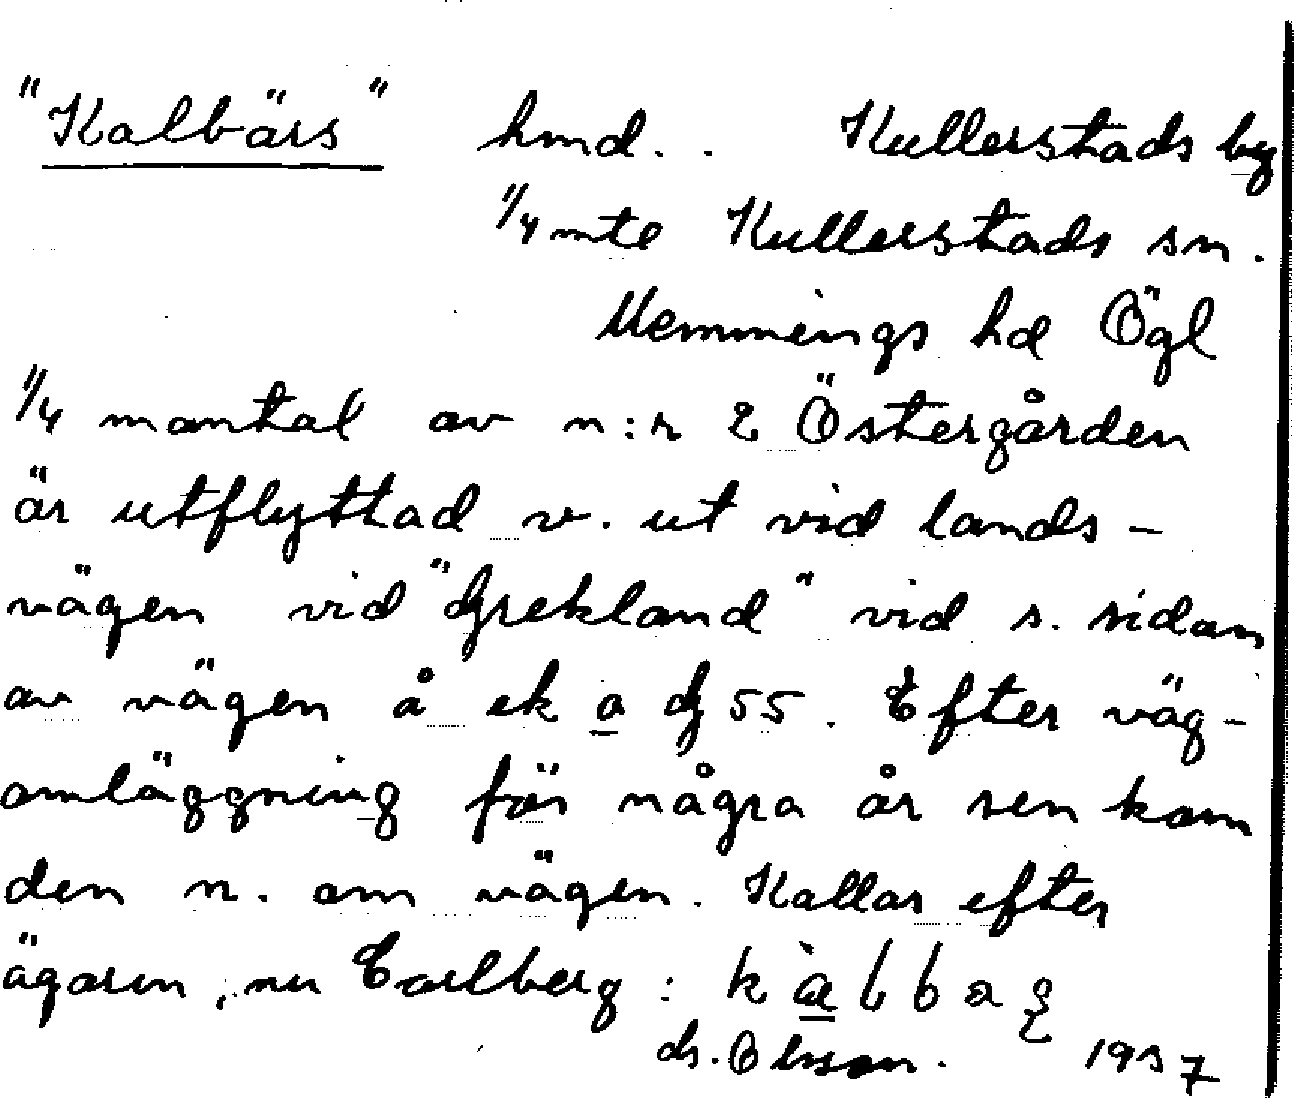 "Kalbärs" hmd. . Kullerstads by
1/4 mtl Kullerstads sn.
Memmings hd Ögl
1/4 mantal av n:r 2 Östergården
är utflyttad v. ut vid lands-
vägen vid "Grekland" vid s. sidan
av vägen å ek a g 55. Efter väg-
omläggning för några år sen kom
den n. om vägen. Kallas efter
ägaren, nu Carlberg :
ds. Olsson. 1937